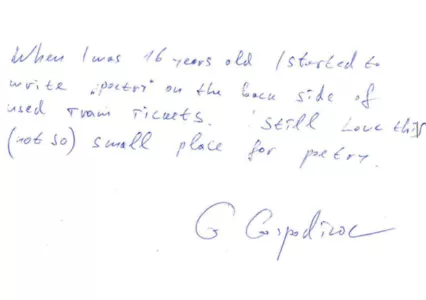 When I was 16 years old I started to
write "poetry" on the back side of
used tram tickets. I still love this
(not so) small place for poetry.
G Gospodinov